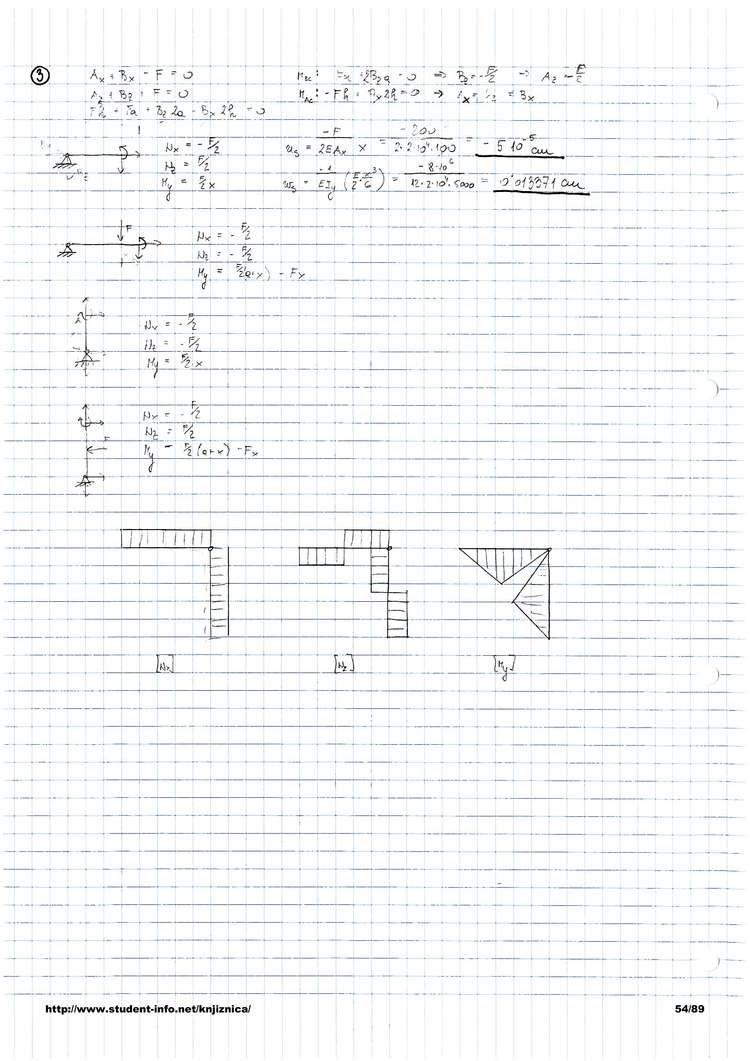 3
A_x + B_x - F = 0
A_z + B_z + F = 0
Fh + Fa + B_z 2a - B_x 2h = 0
M_BC: Fa + 2B_z a = 0 ⇒ B_z = -F/2 → A_z = -F/2
M_AC: -Fh + B_x 2h = 0 ⇒ A_x = F/2 = B_x
N_x = -F/2
N_z = F/2
M_y = F/2 x
u_s = -F/2EA_x x = -200/2·2·10⁴·100 = -5 10⁻⁵ cm
w_s = -1/EI_y (F/2 · x³/6) = -8·10⁶/12·2·10⁴·5000 = 0'013371 cm
F
N_x = -F/2
N_z = -F/2
M_y = F/2(a+x) - Fx
N_x = -F/2
N_z = -F/2
M_y = F/2 · x
N_x = -F/2
N_z = F/2
M_y = F/2 (a+x) - Fx
[N_x] [N_z] [M_y]
http://www.student-info.net/knjiznica/ 54/89